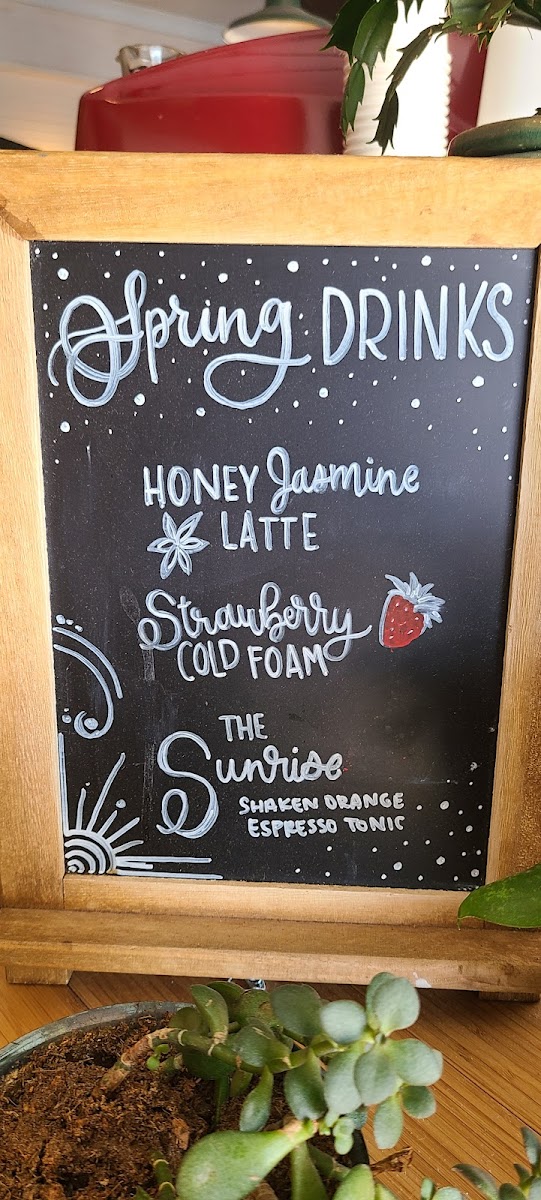 Spring DRINKS
HONEY Jasmine
LATTE
Strawberry
COLD FOAM
THE
Sunrise
SHAKEN ORANGE
ESPRESSO TONIC